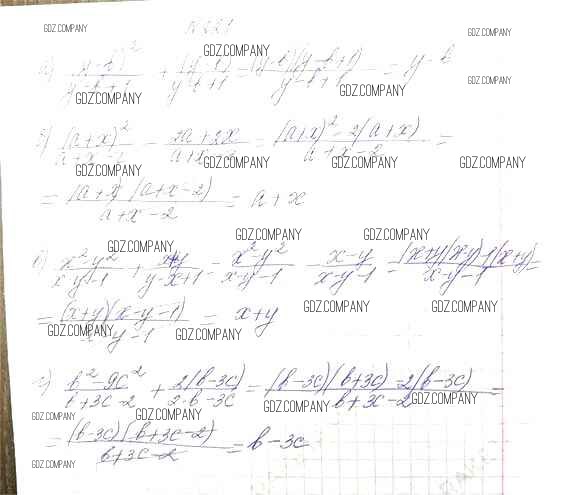 № 221
GDZ.COMPANY GDZ.COMPANY
а) (y-b)²/(y-b+1) + (y-b)/(y-b+1) = (y-b)(y-b+1)/(y-b+1) = y-b
GDZ.COMPANY GDZ.COMPANY GDZ.COMPANY GDZ.COMPANY
(a+x)²/(a+x-2) - (2a+2x)/(a+x-2) = ((a+x)²-2(a+x))/(a+x-2) =
GDZ.COMPANY GDZ.COMPANY GDZ.COMPANY GDZ.COMPANY
= (a+x)(a+x-2)/(a+x-2) = a+x
GDZ.COMPANY GDZ.COMPANY GDZ.COMPANY
(x²-y²)/(x-y-1) + (x+y)/(y-x+1) = (x²-y²)/(x-y-1) - (x-y)/(x-y-1) = ((x+y)(x-y)-1(x+y))/(x-y-1) =
GDZ.COMPANY GDZ.COMPANY GDZ.COMPANY GDZ.COMPANY
= (x+y)(x-y-1)/(x-y-1) = x+y
GDZ.COMPANY GDZ.COMPANY
г) (b²-9c²)/(b+3c-2) + 2(b-3c)/(2-b-3c) = ((b-3c)(b+3c)-2(b-3c))/(b+3c-2) =
GDZ.COMPANY GDZ.COMPANY GDZ.COMPANY GDZ.COMPANY
= (b-3c)(b+3c-2)/(b+3c-2) = b-3c
GDZ.COMPANY